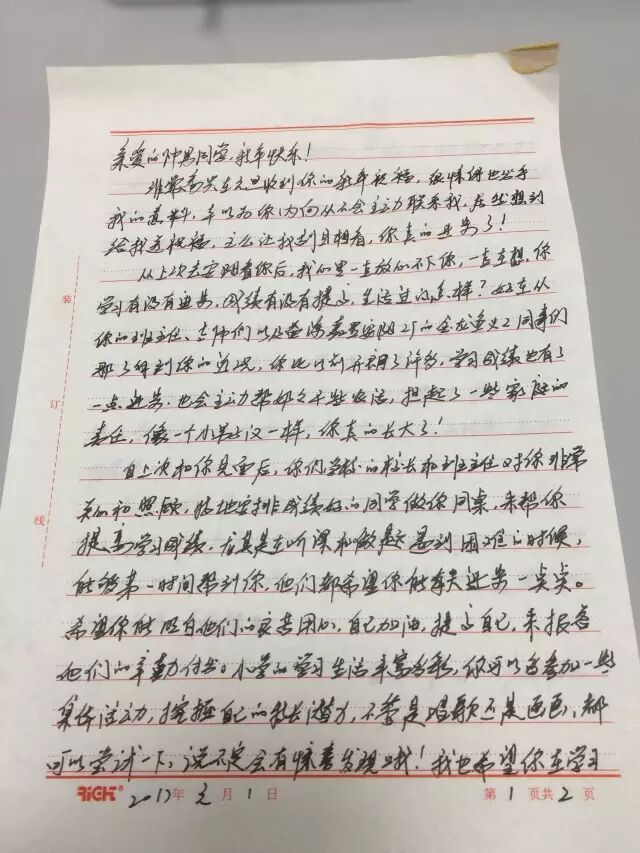 亲爱的仲恩同学,新年快乐!
非常高兴在元旦收到你的新年祝福,很惊讶也出乎
我的意料,本以为你内向从不会主动联系我,居然想到
给我送祝福,这么让我刮目相看,你真的进步了!
从上次去安阳看你后,我心里一直放心不下你,一直在想,你
学习有没有进步,成绩有没有提高,生活过的怎样?好在从
你的班主任、老师们以及 安阳 的金龙鱼义工同事们
那了解到你的近况,你比以前开朗了许多,学习成绩也有了
一点进步,也会主动帮奶奶干些农活,担起了一些家庭的
责任,像一个小男子汉一样,你真的长大了!
自上次和你见面后,你们学校的校长和班主任对你非常
关心和照顾,特地安排成绩好的同学做你同桌,来帮你
提高学习成绩,尤其是在听课和做题遇到困难的时候,
能够第一时间帮到你,他们都希望你能每天进步一点点。
希望你能明白他们的良苦用心,自己加油,提高自己,来报答
他们的辛勤付出。小学的学习生活丰富多彩,你可以多参加一些
集体活动,挖掘自己的特长潜力,不管是唱歌还是画画,都
可以尝试一下,说不定会有惊喜发现哦!我也希望你在学习
装
订
线
RiCH® 2017年元月1日 第1页共2页